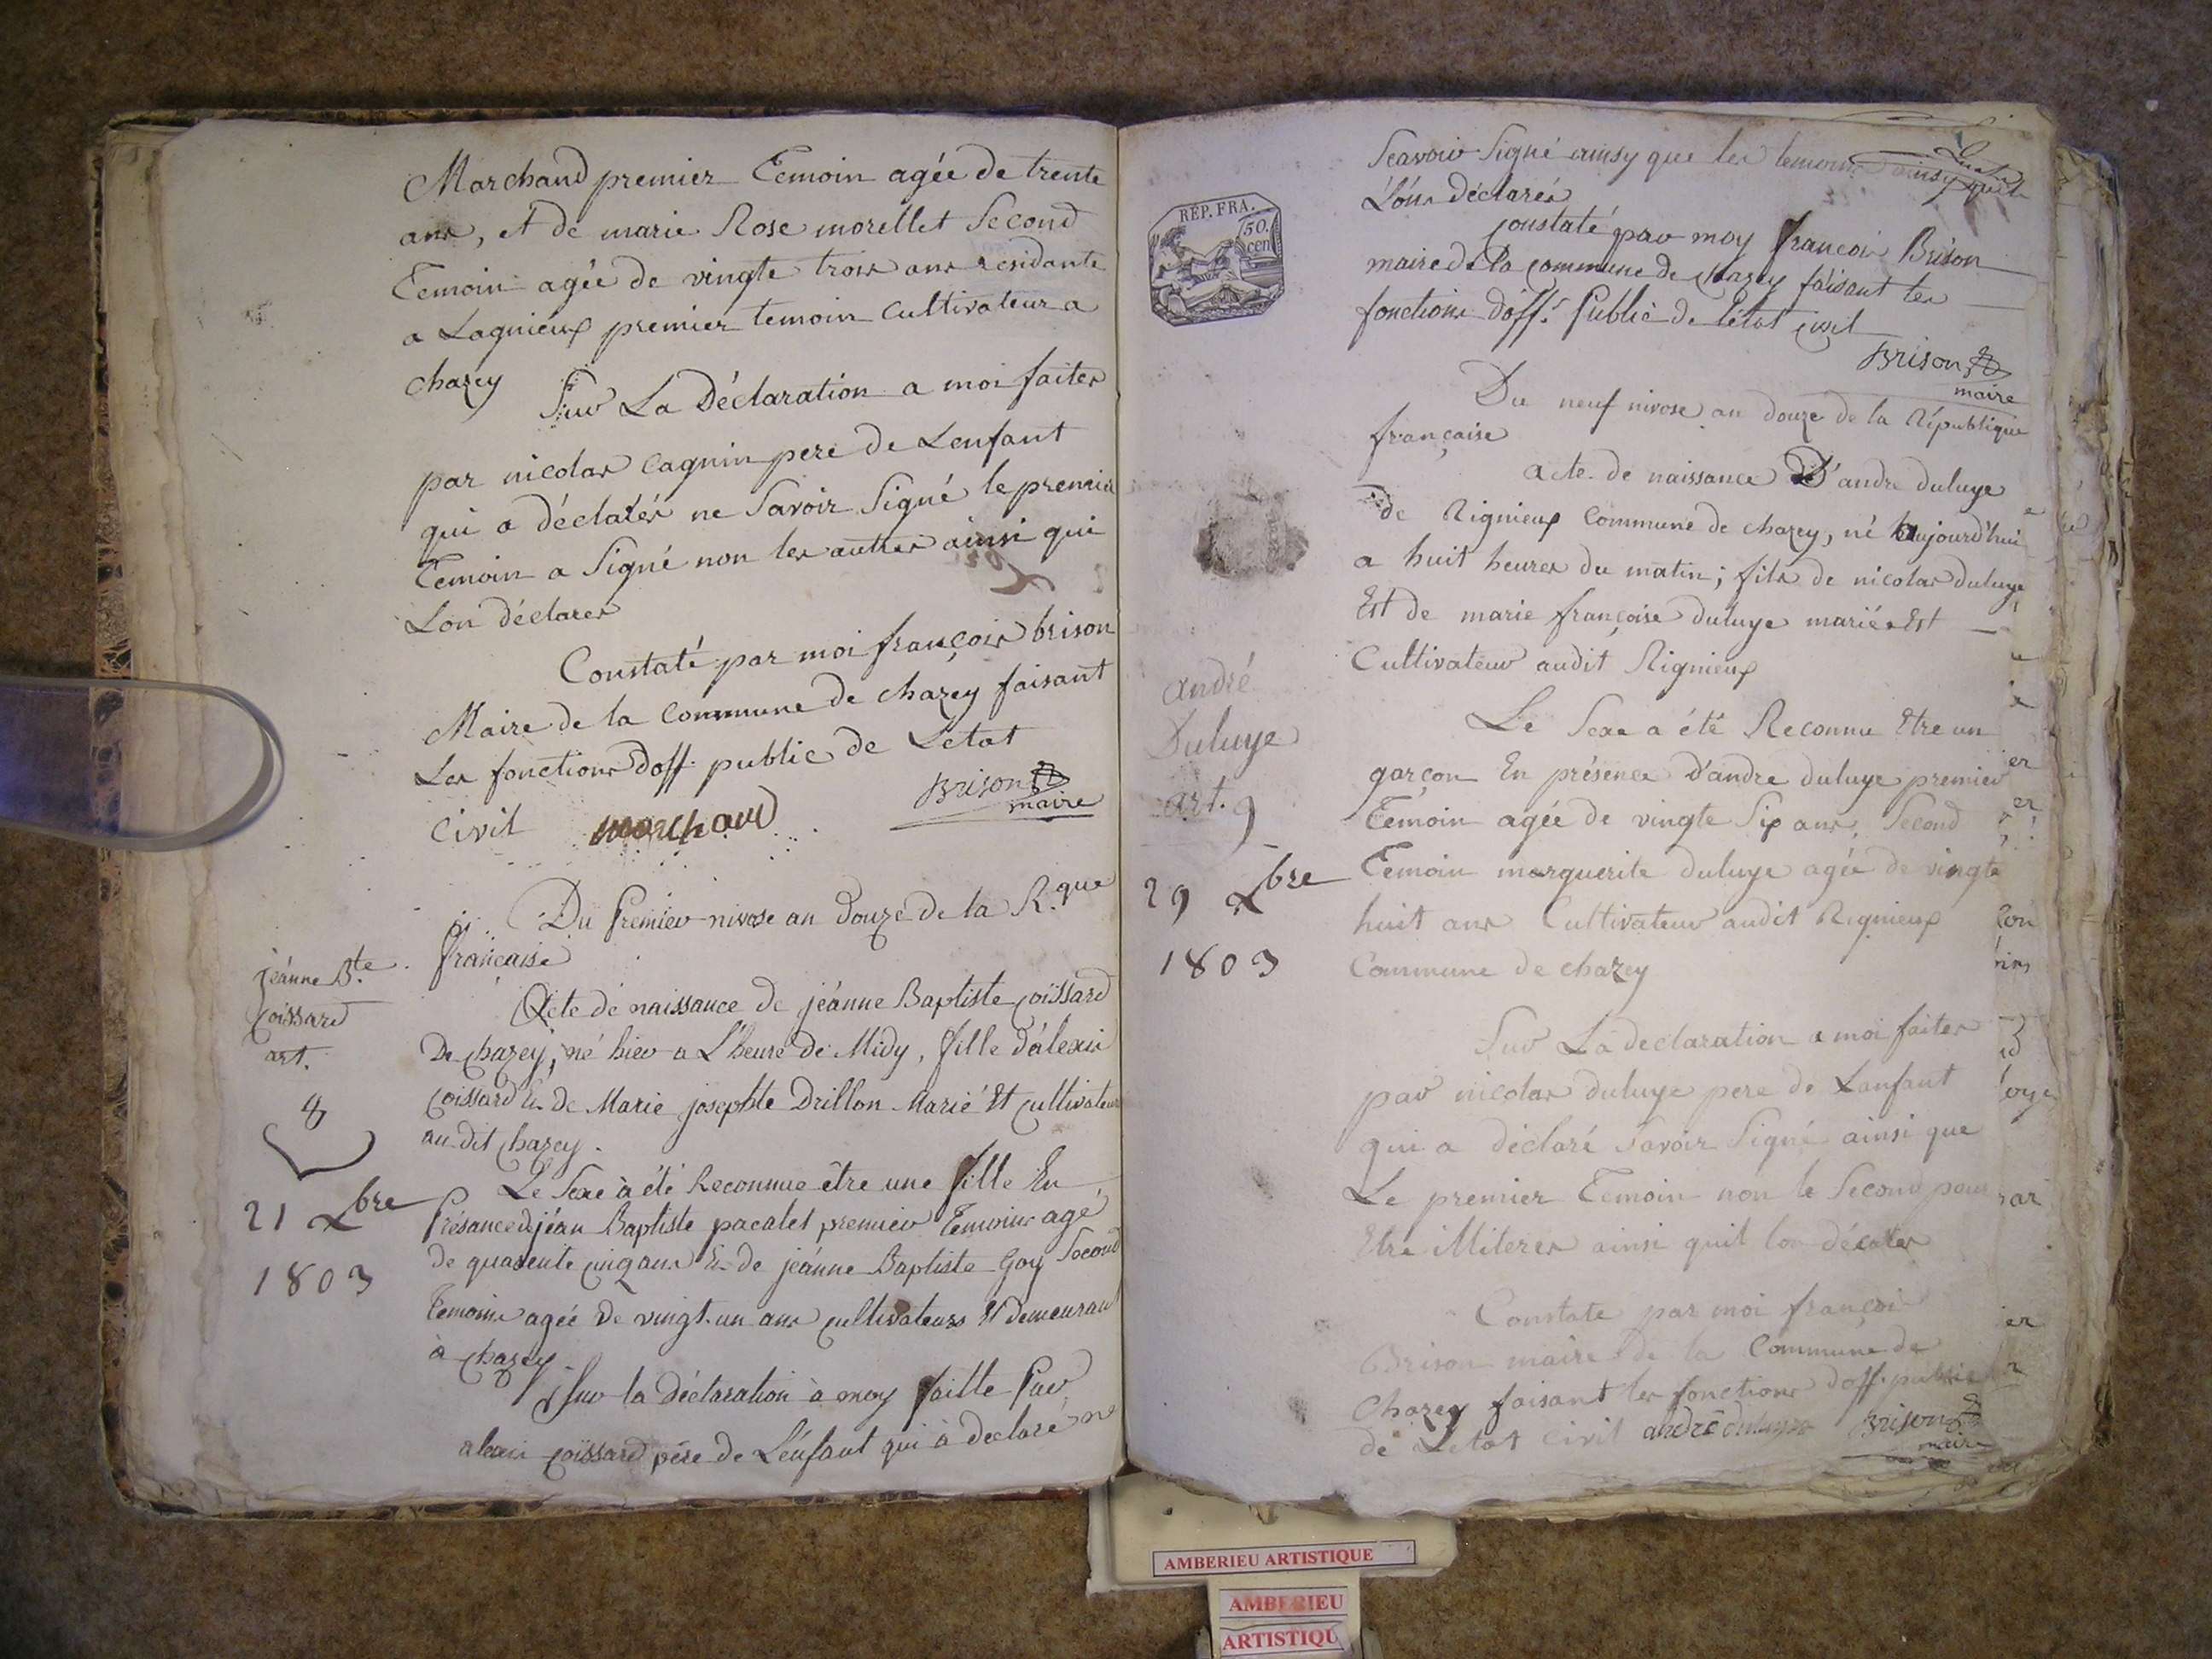 Marchand premier Temoin agée de trente
ans, et de marie Rose morellet Second
Temoin agée de vingte trois ans residante
a Lagnieux premier temoin cultivateur a
chazey
Sur La Déclaration a moi faites
par nicolas cagnin pere de Lenfant
qui a déclarés ne Savoir Signé le premier
Temoin a Signé non les autres ainsi qui
Lon déclarer
Constaté par moi françois brison
Maire de la Commune de chazey faisant
Les fonctions doff. public de Letat
Civil marchand
Brison
maire
Du Premier nivose an douze de la R.que
française
jeánne B.te
Coissard
art.
8
21 Xbre
1803
Acte de naissance de jeánne Baptiste Coissard
De Chazey, né hier a L'heure de Midy, fille d'alexis
Coissard Et de Marie josephte Drillon Marié Et Cultivateur
au dit Chazey.
Le Sexe à été Reconnue être une fille En
Présance de jéan Baptiste pacalet premier Temoins agé
de quarente cinq ans Et de jeánne Baptiste Goy Second
Temoins agée de vingt-un ans cultivateurs Et demeurant
à Chazey
Sur la Déclaration à moy faitte Par
alexis Coissard père de L'enfant qui à declaré ne
Scavoir Signé ainsy que les temoins ainsy quils
L'ons déclarés
REP. FRA.
50.
cen
Constaté par moy françois Brison
maire de la Commune de Chazey faisant les
fonctions d'off.r Public de l'état Civil
Brison
maire
Du neuf nivose an douze de la République
française
acte de naissance D'andre duluye
de Rignieux Commune de chazey, né aujourd'hui
a huit heures du matin; fils de nicolas duluye
Est de marie françoise duluye mariés Est
Cultivateur audit Rignieux
andré
Duluye
art. 9
29 Xbre
1803
Le Sexe a été Reconnu Etre un
garçon En présence D'andre duluye premier
Temoin agée de vingte Six ans, Second
Temoin marguerite duluye agée de vingte
huit ans Cultivateur audit Rignieux
Commune de chazey
Sur La declaration a moi faites
par nicolas duluye pere de Lanfant
qui a déclaré Savoir Signé ainsi que
Le premier Temoin non le Second pour
Etre illiterer ainsi quil lon déclarer
Constate par moi françois
Brison maire de la Commune de
Chazey faisant les fonctions doff. public
de Letat Civil andré duluye Brison
maire
AMBERIEU ARTISTIQUE
AMBERIEU
ARTISTIQU